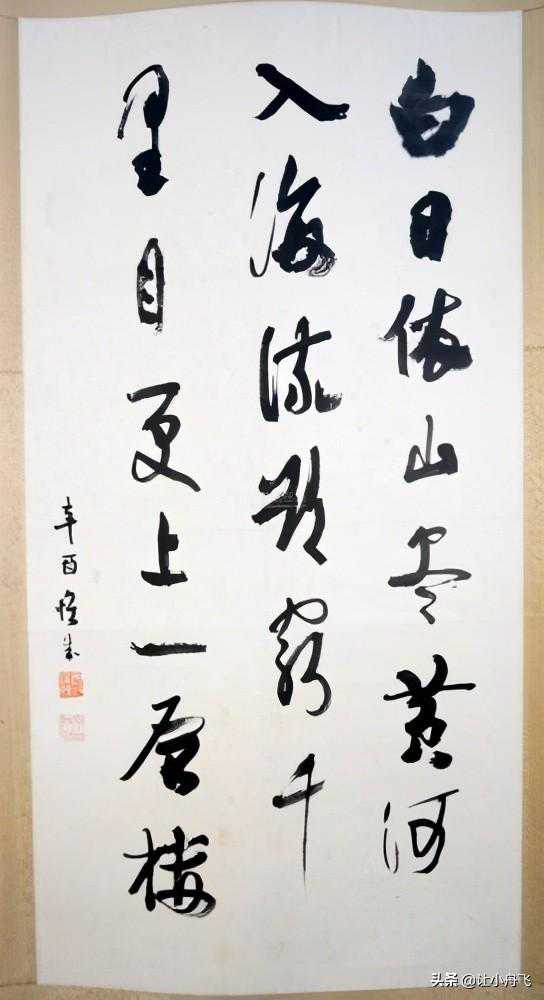 白日依山尽黄河
入海流欲穷千
里目更上一层楼
辛酉
头条 @让小舟飞